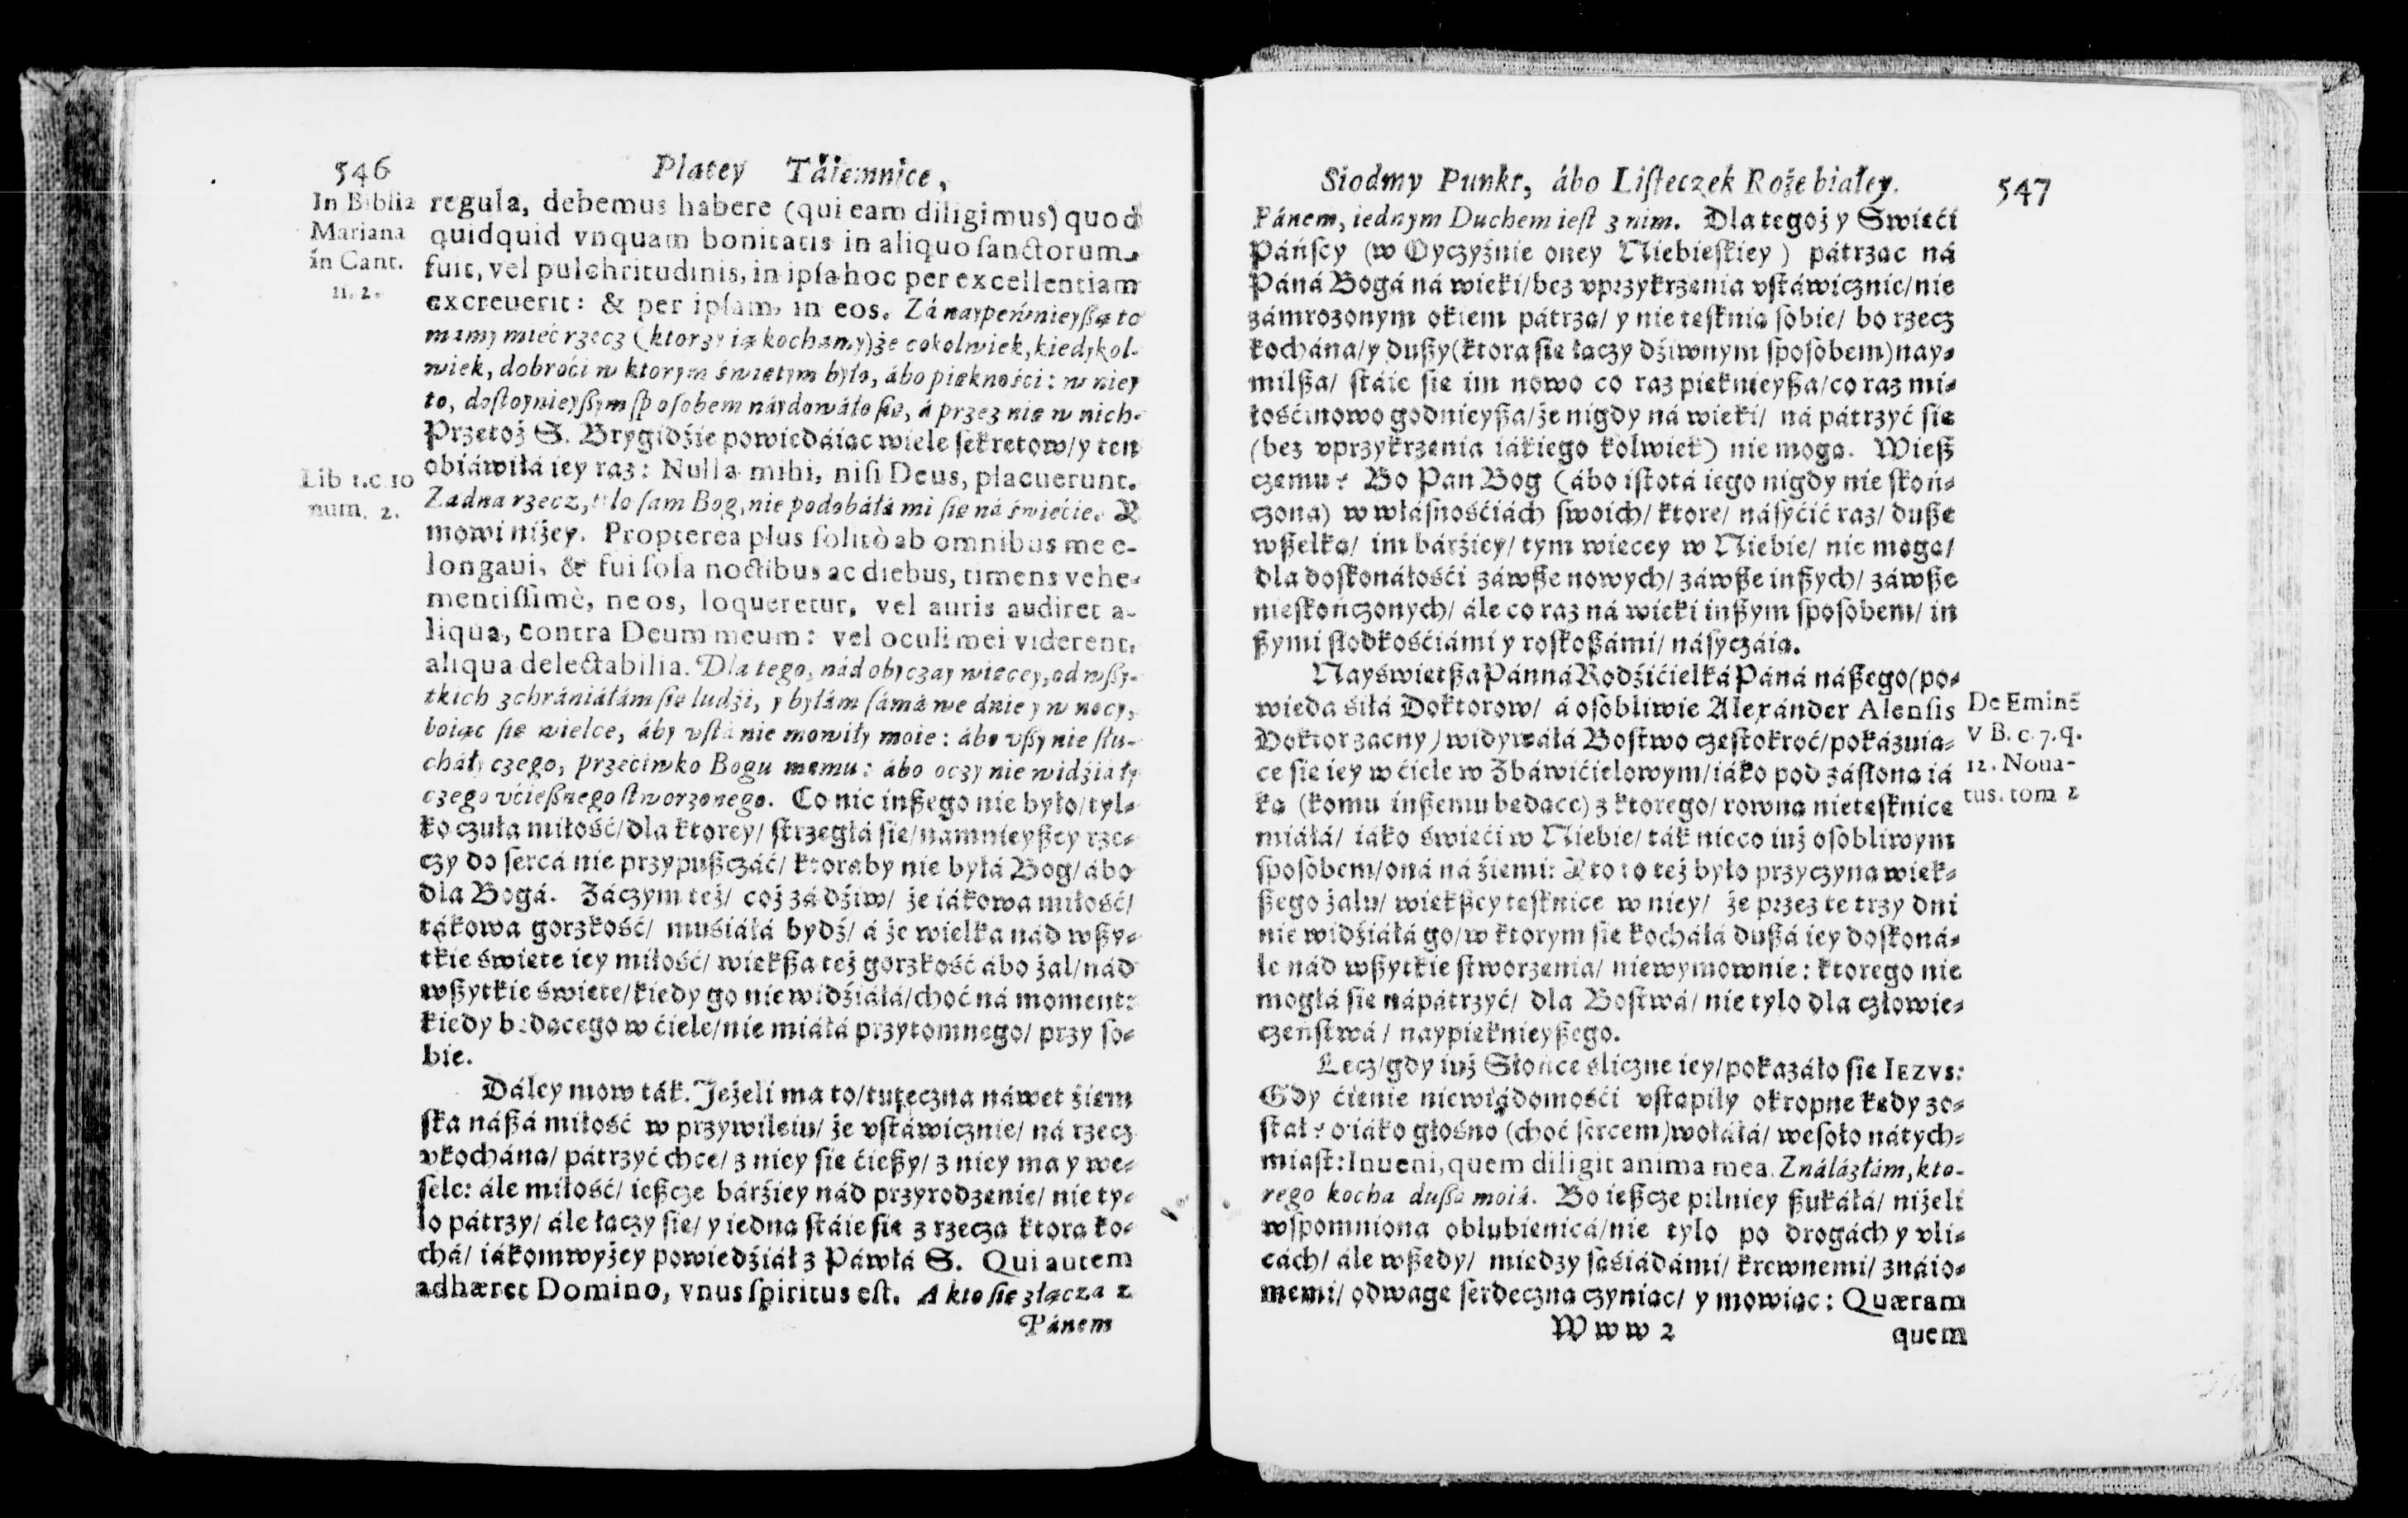 546
Platey Táiemnice,
In Biblia
Mariana
in Cant.
11. 2.
regula, debemus habere (qui eam diligimus) quod
quidquid vnquam bonitatis in aliquo ſanctorum
fuit, vel pulchritudinis, in ipſa hoc per excellentiam
excreuerit: & per ipſam, in eos. Zá naypewnieyßą to
mamy mieć rzecz (ktorzy ią kochamy) że cokolwiek, kiedykol-
wiek, dobroći w ktorym świętym było, ábo pięknośći: w niey
to, doſtoynieyßym ſpoſobem náydowáło ſię, á przez nię w nich.
Przetoż S. Brygidźie powiedáiąc wiele ſekretow/ y ten
obiáwiłá iey raz: Nulla mihi, niſi Deus, placuerunt.
Lib 1.c 10
num. 2.
Zadna rzecz, tylo ſam Bog, nie podobáłá mi ſię ná świećie. A
mowi niżey. Propterea plus ſolitò ab omnibus me e-
longaui, & fui ſola noctibus ac diebus, timens vehe-
mentiſſimè, ne os, loqueretur, vel auris audiret a-
liqua, contra Deum meum: vel oculi mei viderent,
aliqua delectabilia. Dla tego, nád obyczay więcey, od wßy-
tkich zchrániáłám ſię ludźi, y byłám ſámá we dnie y w nocy,
boiąc ſię wielce, áby vſtá nie mowiły moie: ábo vßy nie ſłu-
cháły czego, przećiwko Bogu memu: ábo oczy nie widźiáły
czego vćießnego ſtworzonego. Co nic inßego nie było/ tyl-
ko czuła miłość/ dla ktorey/ ſtrzegłá ſię/ namnieyßey rze-
czy do ſercá nie przypußczáć/ ktoraby nie byłá Bog/ ábo
dla Bogá. Záczym też/ coż zá dźiw/ że iákowa miłość/
tákowa gorzkość/ muśiáłá bydź/ á że wielka nád wßy-
tkie święte iey miłość/ więkßa też gorzkość ábo żal/ nád
wßytkie święte/ kiedy go nie widźiáłá/ choć ná moment:
kiedy będącego w ćiele/ nie miáłá przytomnego/ przy ſo-
bie.
Dáley mow ták. Jeżeli ma to/ tuteczna náwet źiem
ſka náßá miłość w przywileiu/ że vſtáwicznie/ ná rzecz
vkochána/ pátrzyć chce/ z niey ſię ćießy/ z niey ma y we-
ſele: ále miłość/ ießcze bárźiey nád przyrodzenie/ nie ty-
lo pátrzy/ ále łączy ſię/ y iedna ſtáie ſię z rzeczą ktorą ko-
chá/ iákom wyżey powiedźiáł z Páwłá S. Qui autem
adhæret Domino, vnus ſpiritus eſt. A kto ſię złącza z
Pánem
Siodmy Punkt, ábo Liſteczek Roże białey.
547
Pánem, iednym Duchem ieſt z nim. Dla tegoż y Swięći
Páńſcy (w Oyczyźnie oney Niebieſkiey) pátrzac ná
Páná Bogá ná wieki/ bez vprzykrzenia vſtáwicznie/ nie
zámrozonym okiem pátrzą/ y nie teſknią ſobie/ bo rzecz
kochána/ y dußy (ktora ſię łączy dźiwnym ſpoſobem) nay-
milßa/ ſtáie ſię im nowo co raz pięknieyßa/ co raz mi-
łośći nowo godnieyßa/ że nigdy ná wieki/ ná pátrzyć ſię
(bez vprzykrzenia iákiego kolwiek) nie mogą. Wieß
czemu? Bo Pan Bog (ábo iſtotá iego nigdy nie ſkoń-
czona) w włáſnośćiách ſwoich/ ktore/ náſyćić raz/ dußę
wßelką/ im bárźiey/ tym więcey w Niebie/ nie mogą/
dla doſkonáłośći záwße nowych/ záwße inßych/ záwße
nieſkończonych/ ále co raz ná wieki inßym ſpoſobem/ in
ßymi ſłodkośćiámi y roſkoßámi/ náſyczáią.
Nayświętßa Pánná Rodźićielká Páná náßego (po-
wieda śiłá Doktorow/ á oſobliwie Alexánder Alenſis
Doktor zacny) widywáłá Boſtwo częſtokroć/ pokázuią-
De Eminē
V B. c. 7. q.
12. Noua-
tus. tom 2
ce ſię iey w ćiele w Zbáwićielowym/ iáko pod záſłoną iá
ką (komu inßemu będące) z ktorego/ rowną nieteſknicę
miáłá/ iáko święći w Niebie/ ták nieco iuż oſobliwym
ſpoſobem/ oná ná źiemi: A to to też było przyczyną więk-
ßego żalu/ więkßey teſknice w niey/ że przez te trzy dni
nie widźiáłá go/ w ktorym ſię kocháłá dußá iey doſkoná-
le nád wßytkie ſtworzenia/ niewymownie: ktorego nie
mogłá ſię nápátrzyć/ dla Boſtwá/ nie tylo dla człowie-
czeńſtwá/ naypięknieyßego.
Lecz/ gdy iuż Słońce śliczne iey/ pokazáło ſię IEZVS:
Gdy ćienie niewiádomośći vſtąpiły okropne kędy zo-
ſtał? o iáko głośno (choć ſercem) wołáłá/ weſoło nátych-
miaſt: Inueni, quem diligit anima mea. Ználázłám, kto-
rego kocha dußa moiá. Bo ießcze pilniey ßukáłá/ niżeli
wſpomniona oblubienicá/ nie tylo po drogách y vli-
cách/ ále wßędy/ między ſąśiádámi/ krewnemi/ znáio-
memi/ odwagę ſerdeczną czyniąc/ y mowiąc: Quæram
W w w 2
quem